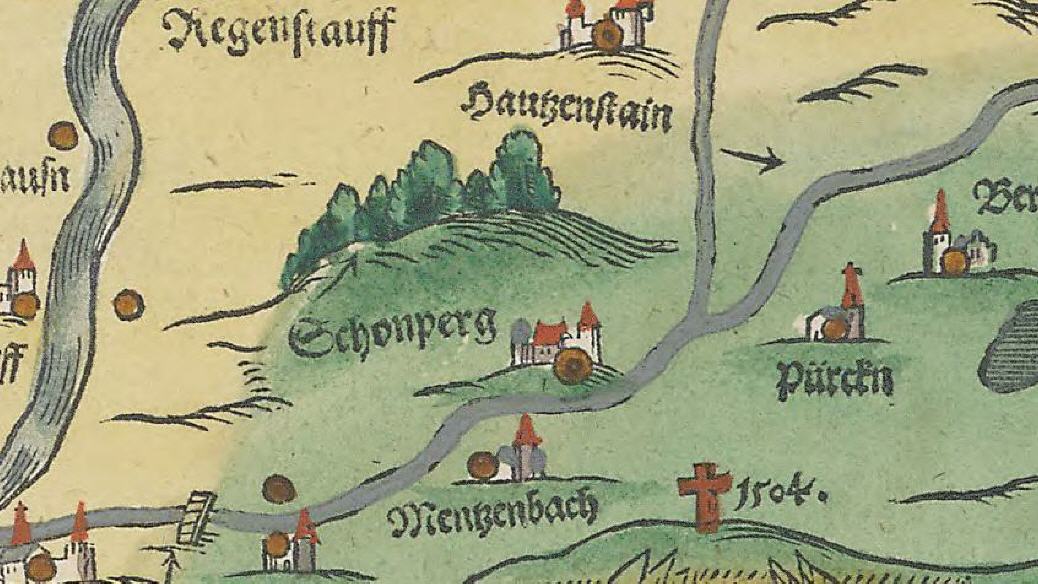 Regenstauff
Hautzenstain
ausn
Ber
Schonperg
ff
Pürckn
1504.
Mentzenbach